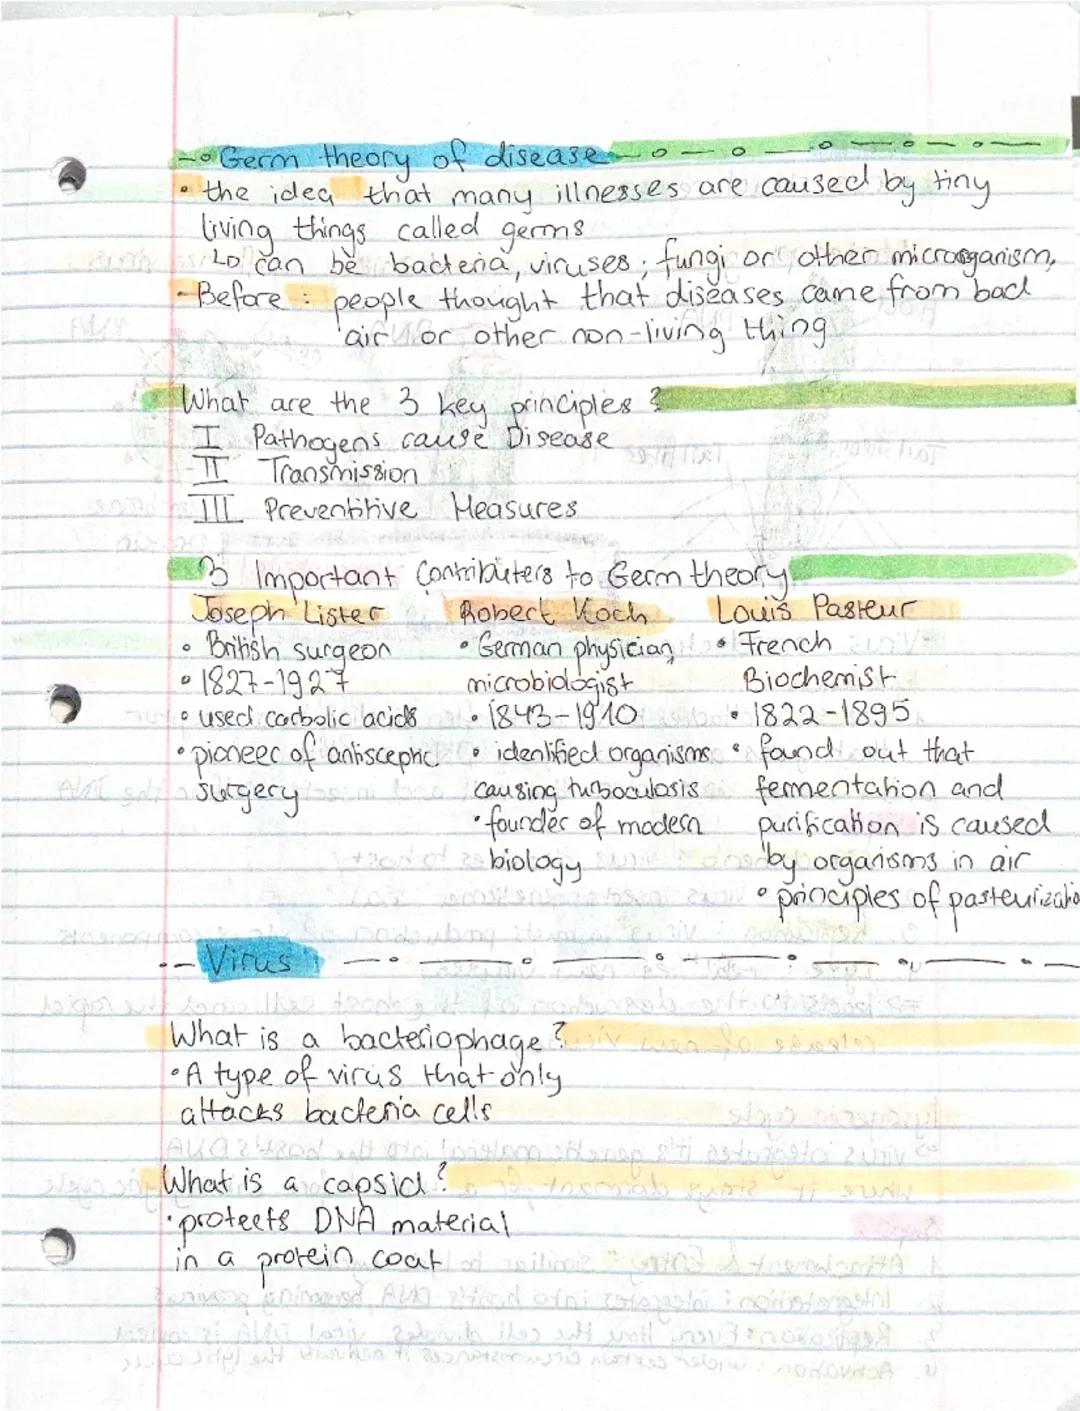 Germ theory of disease
• the idea that many illnesses are caused by tiny
living things called germs
↳ can be bacteria, viruses, fungi or other microrganism,
- Before : people thought that diseases came from bad
air or other non-living thing
What are the 3 key principles ?
I Pathogens cause Disease
II Transmission
III Preventitive Measures
3 Important Contributers to Germ theory
Joseph Lister
• British surgeon
• 1827-1927
• used carbolic acids
• pioneer of antisceptic
surgery
Robert Koch
• German physician,
microbiologist
• 1843-1910
• identified organisms
causing turboculosis
• founder of modern
biology
Louis Pasteur
• French
Biochemist
• 1822-1895
• found out that
fermentation and
purification is caused
by organisms in air
• principles of pasteurizatio
Virus
What is a bacteriophage ?
• A type of virus that only
attacks bacteria cells
What is a capsid ?
• protects DNA material
in a protein coat